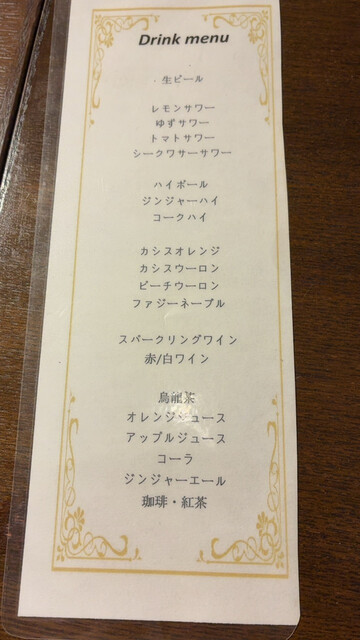 Drink menu
生ビール
レモンサワー
ゆずサワー
トマトサワー
シークワサーサワー
ハイボール
ジンジャーハイ
コークハイ
カシスオレンジ
カシスウーロン
ピーチウーロン
ファジーネーブル
スパークリングワイン
赤/白ワイン
烏龍茶
オレンジジュース
アップルジュース
コーラ
ジンジャーエール
珈琲・紅茶